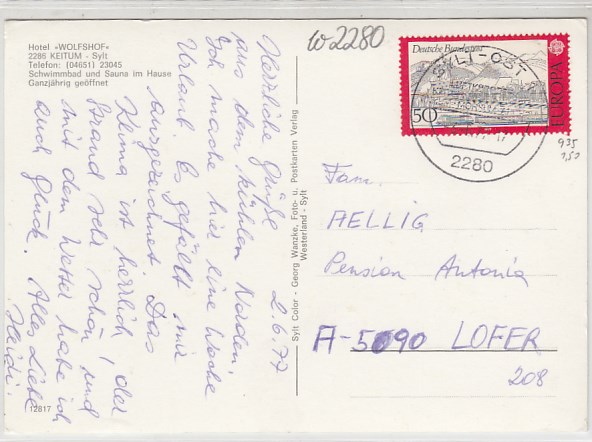 Hotel »WOLFSHOF«
2286 KEITUM - Sylt
Telefon: (04651) 23045
Schwimmbad und Sauna im Hause
Ganzjährig geöffnet
w 2280
Deutsche Bundespost
50
EUROPA
SYLT-OST
2280
935
1,50
Herzliche Grüße 2.6.77
aus dem kühlen Norden.
Ich mache hier eine Woche
Urlaub. Es gefällt mir
ausgezeichnet. Das
Klima ist herrlich, der
Strand sehr schön und
mit dem Wetter habe ich
auch Glück. Alles Liebe
Heidi.
12817
Sylt Color - Georg Wanzke, Foto- u. Postkarten Verlag
Westerland - Sylt
Fam.
AELLIG
Pension Antonia
A-5090 LOFER
208